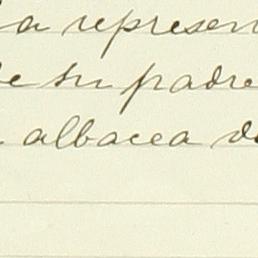 la represen
de su padre
albacea de